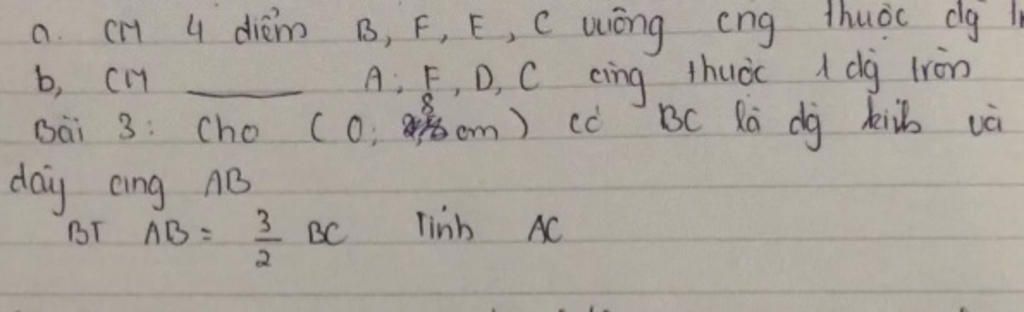 a. CM 4 điểm B, F, E, C cùng thuộc đg
b, CM ____ A, F, D, C cùng thuộc 1 đg tròn
Bài 3: Cho (O; 8 cm) có BC là đg kính và
dây cung AB
BT AB = 3/2 BC Tính AC